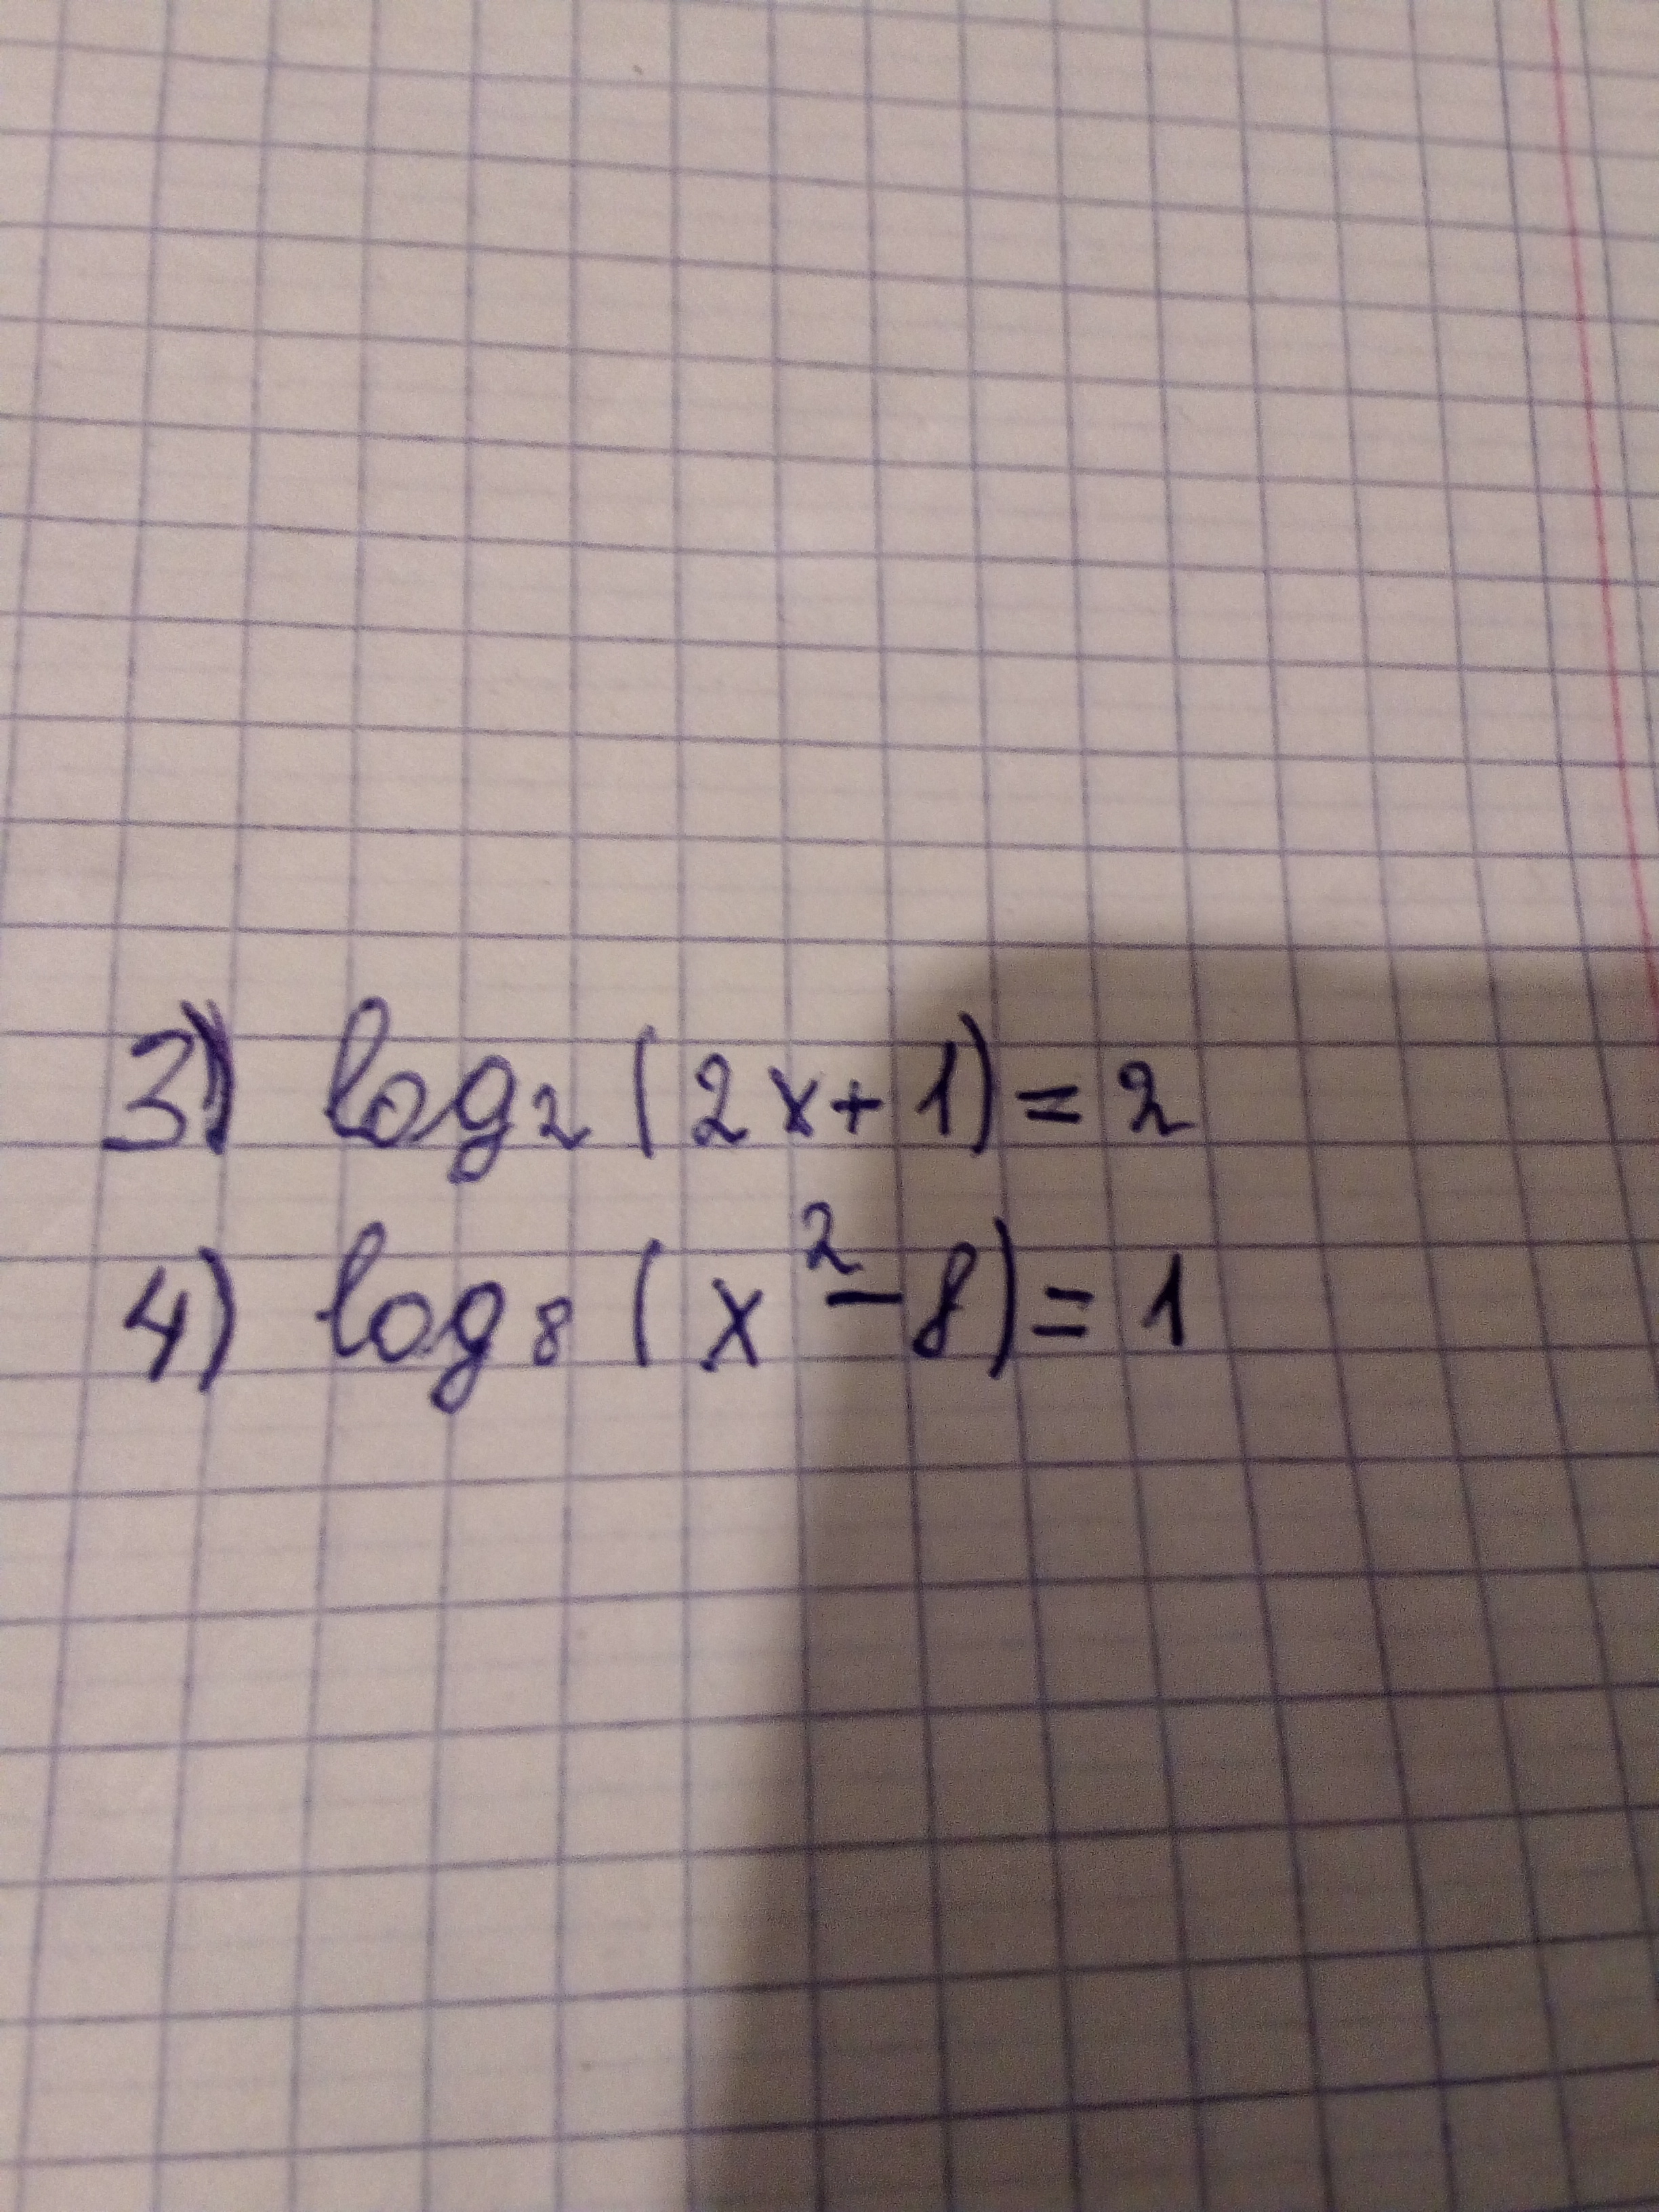 3) log₂(2x+1)=2
4) log₈(x²-8)=1